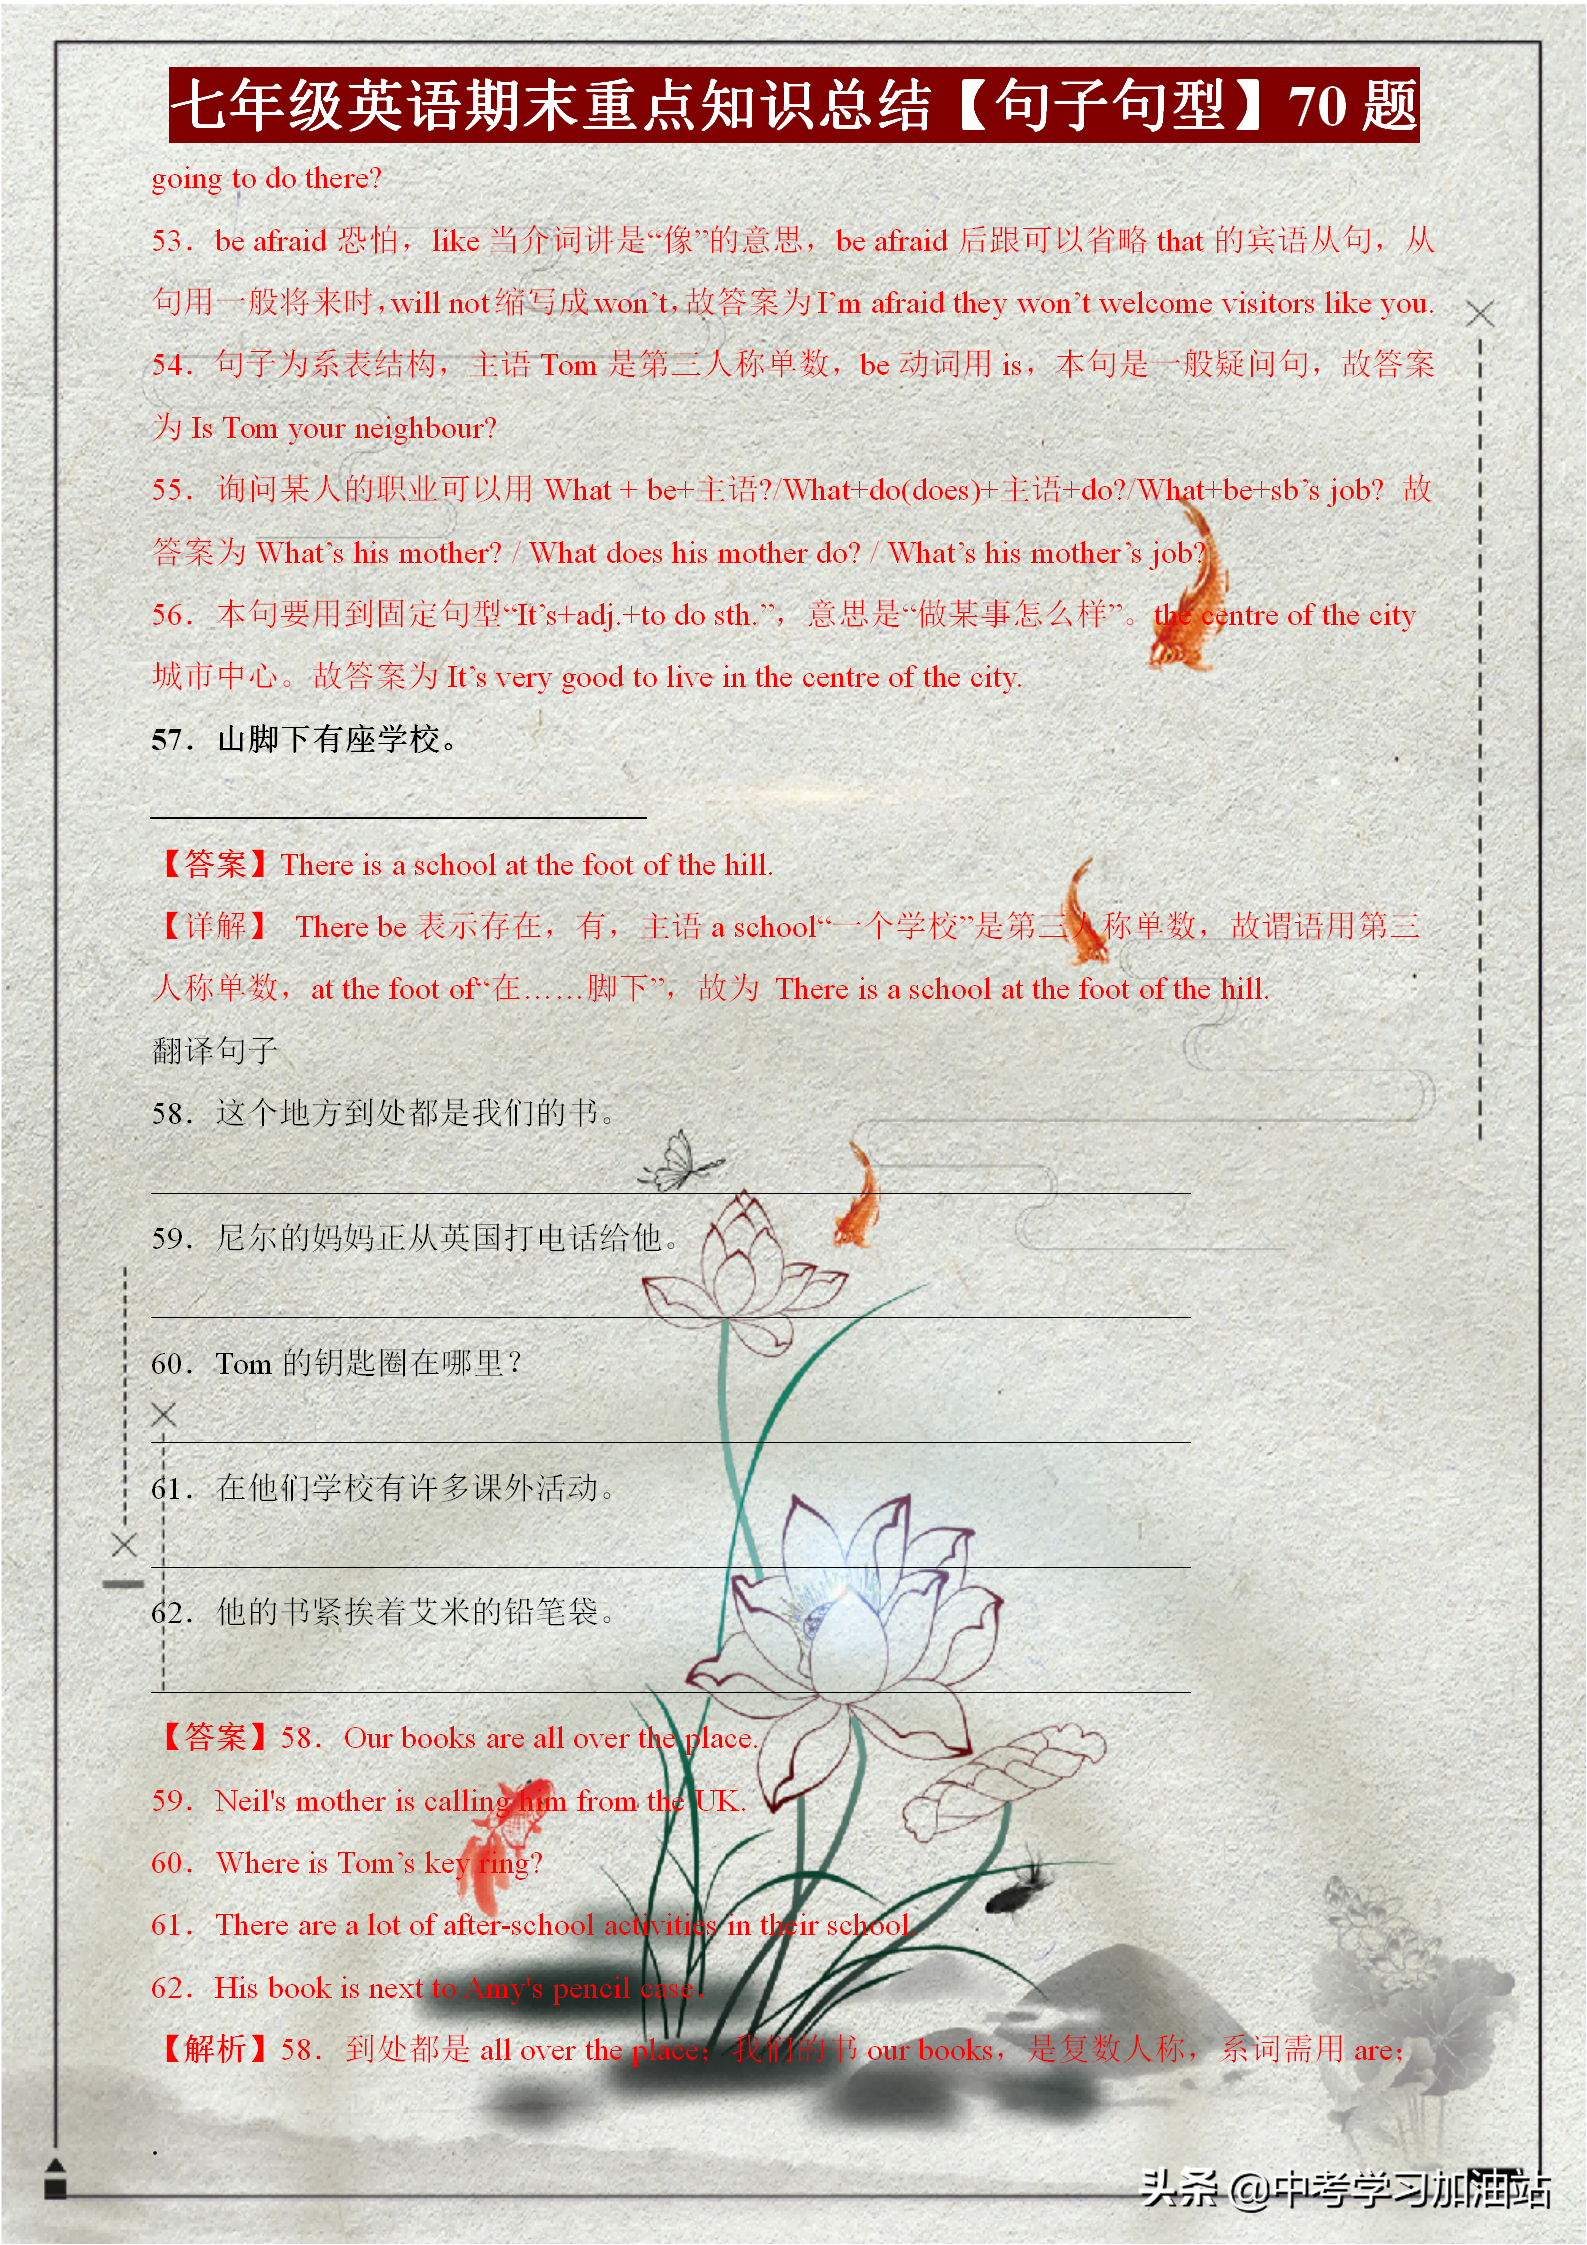 七年级英语期末重点知识总结【句子句型】70 题
going to do there?
53．be afraid 恐怕，like 当介词讲是“像”的意思，be afraid 后跟可以省略 that 的宾语从句，从
句用一般将来时，will not 缩写成 won’t，故答案为 I’m afraid they won’t welcome visitors like you.
54．句子为系表结构，主语 Tom 是第三人称单数，be 动词用 is，本句是一般疑问句，故答案
为 Is Tom your neighbour?
55．询问某人的职业可以用 What + be+主语?/What+do(does)+主语+do?/What+be+sb’s job? 故
答案为 What’s his mother? / What does his mother do? / What’s his mother’s job?
56．本句要用到固定句型“It’s+adj.+to do sth.”，意思是“做某事怎么样”。the centre of the city
城市中心。故答案为 It’s very good to live in the centre of the city.
57．山脚下有座学校。
【答案】There is a school at the foot of the hill.
【详解】 There be 表示存在，有，主语 a school“一个学校”是第三人称单数，故谓语用第三
人称单数，at the foot of“在……脚下”，故为 There is a school at the foot of the hill.
翻译句子
58．这个地方到处都是我们的书。
59．尼尔的妈妈正从英国打电话给他。
60．Tom 的钥匙圈在哪里？
61．在他们学校有许多课外活动。
62．他的书紧挨着艾米的铅笔袋。
【答案】58．Our books are all over the place.
59．Neil's mother is calling him from the UK.
60．Where is Tom’s key ring?
61．There are a lot of after-school activities in their school.
62．His book is next to Amy's pencil case.
【解析】58．到处都是 all over the place；我们的书 our books，是复数人称，系词需用 are；
.
头条 @中考学习加油站